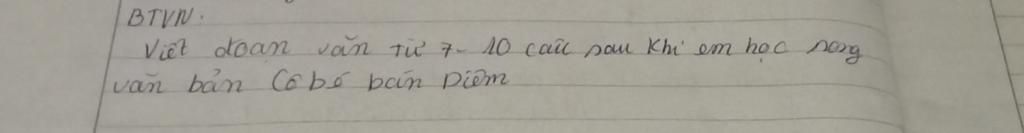 BTVN.
Viết đoạn văn từ 7-10 câu sau khi em học xong
văn bản Cô bé bán Diêm